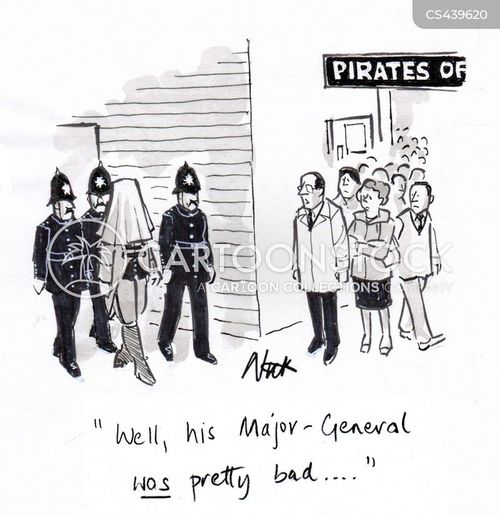 CS439620
PIRATES OF
CARTOONSTOCK
CARTOON COLLECTIONS
Nick
"Well, his Major-General
was pretty bad...."